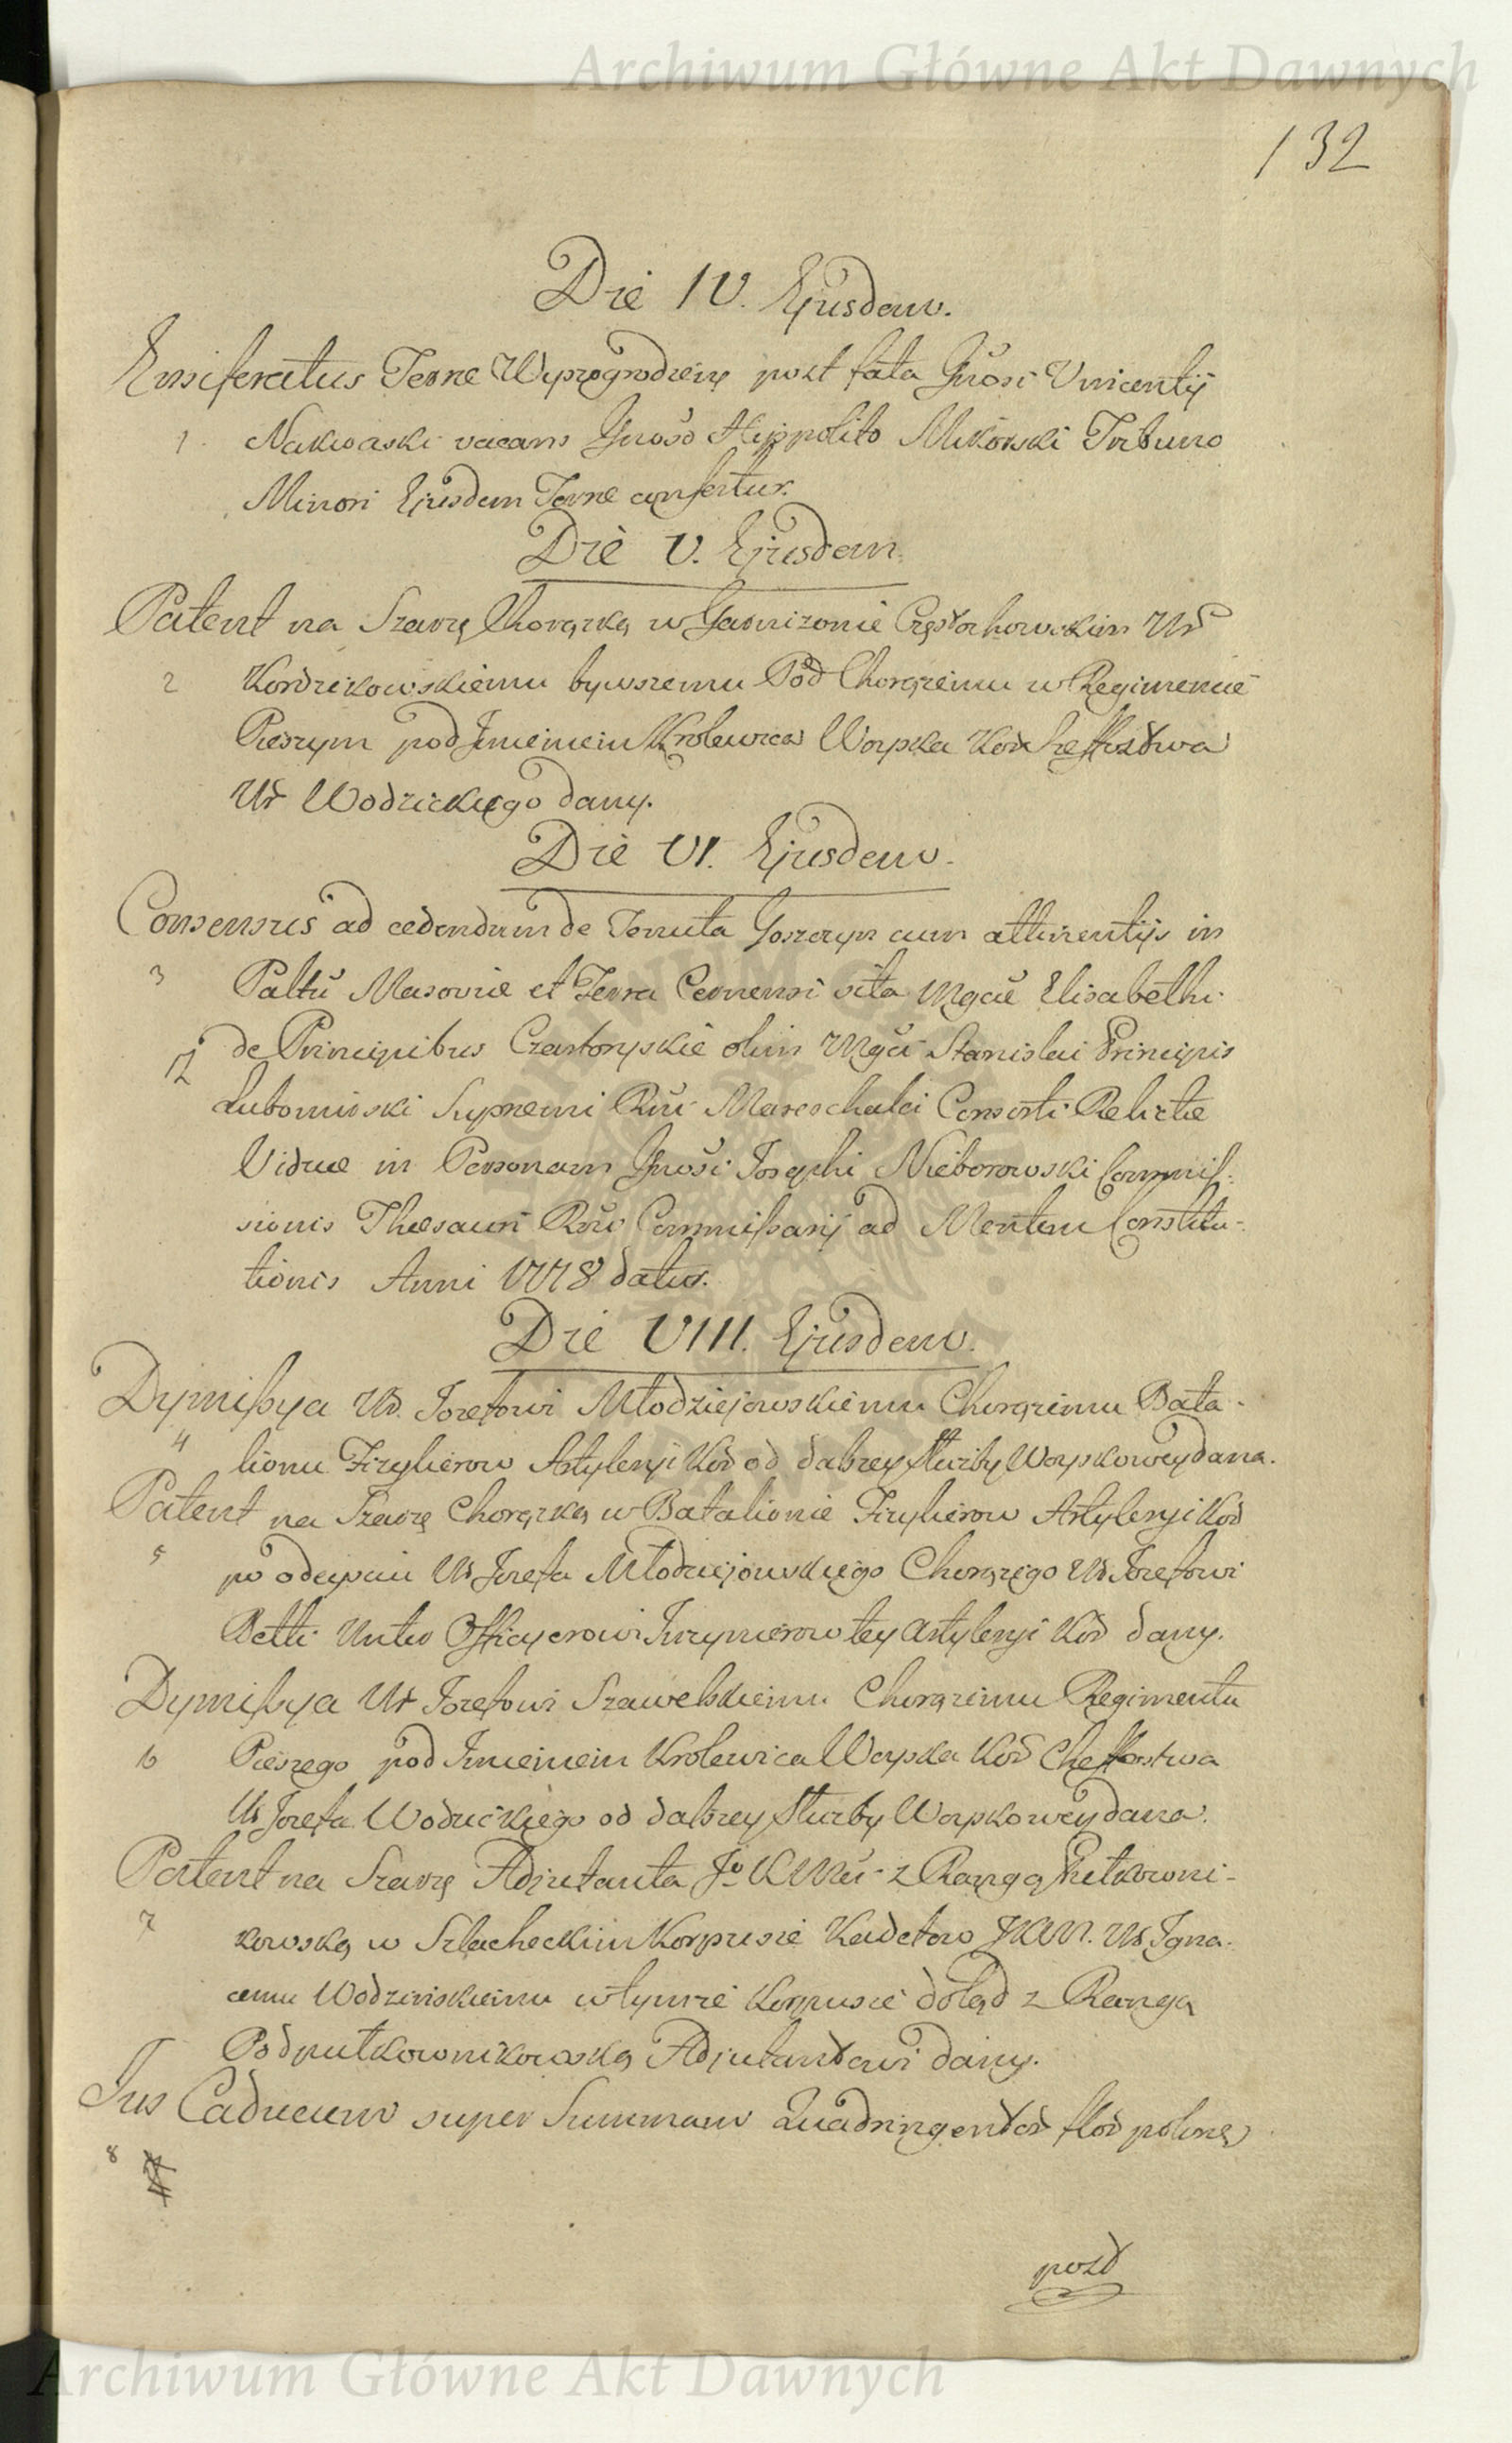 Archiwum Główne Akt Dawnych
132
Die IV. Ejusdem.
Ensiferatus Terræ Wyszogrodzien post fata Gnosi Vincentij
1. Nakwaski vacans Gnoso Hippolito Mikorski Tribuno
Minori Ejusdem Terræ confertur.
Die V. Ejusdem.
Patent na Szarżę Chorążką w Garnizonie Częstochowskim Ur
2 Kordzikowskiemu bywszemu Pod Chorążemu w Regimencie
Pieszym pod Imieniem Krolewica Woyska Kor Szeffostwa
Ur Wodzickiego dany.
Die VI. Ejusdem.
Consensus ad cedendum de Tenuta Goszczyn cum attinentijs in
3 Paltu Masoviæ et Terra Cernensi sita Mgcæ Elisabethæ
de Principibus Czartoryskie olim Mgci Stanislai Principis
12
Lubomirski Supremi Rni Mareschalci Consorti Relictæ
Viduæ in Personam Gnosi Josephi Nieborowski Commis-
sionis Thesauri Rni Commissarij ad Mentem Constitu-
tionis Anni 1778 datur.
Die VIII. Ejusdem.
Dymissya Ur. Jozefowi Młodziejowskiemu Chorążemu Bata-
4 lionu Fizylierow Artyleryi Kor od dalszey służby Woyskowey dana.
Patent na Szarżę Chorążką w Batalionie Fizylierow Artyleryi Kor
5 po odeyściu Ur Jozefa Młodziejowskiego Chorążego Ur Jozefowi
Betti Unter Officyerowi Inżynierow tey Artyleryi Kor dany.
Dymissya Ur Jozefowi Szawelskiemu Chorążemu Regimentu
6 Pieszego pod Imieniem Krolewica Woyska Kor Cheffostwa
Ur Jozefa Wodzickiego od dalszey służby Woyskowey dana.
Patent na Szarżę Adjutanta Jo K Mci z Rangą Pułkowni-
7 kowską w Szlacheckim Korpusie Kadetow JKM. Ur Igna-
cemu Wodzinskiemu w tymże Korpusie dotąd z Rangą
Podpułkownikowską Adjutantowi dany.
Jus Caducum super Summam Quadringentor flor polnes
8
post
Archiwum Główne Akt Dawnych